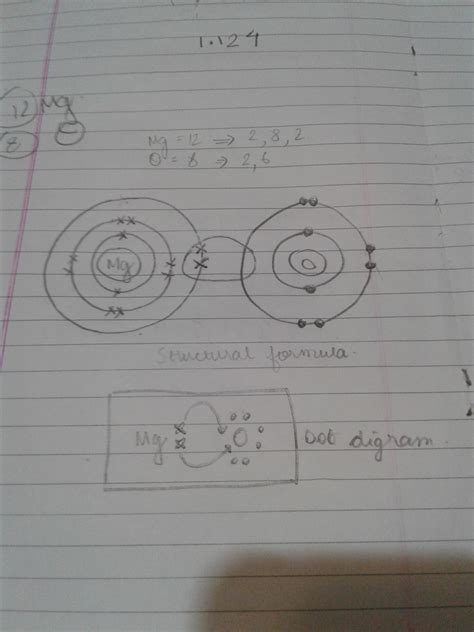 1.124
12 Mg
8 O
Mg = 12 ⇒ 2, 8, 2
O = 8 ⇒ 2, 6
Mg
O
Structural formula.
Mg O Dot digram.